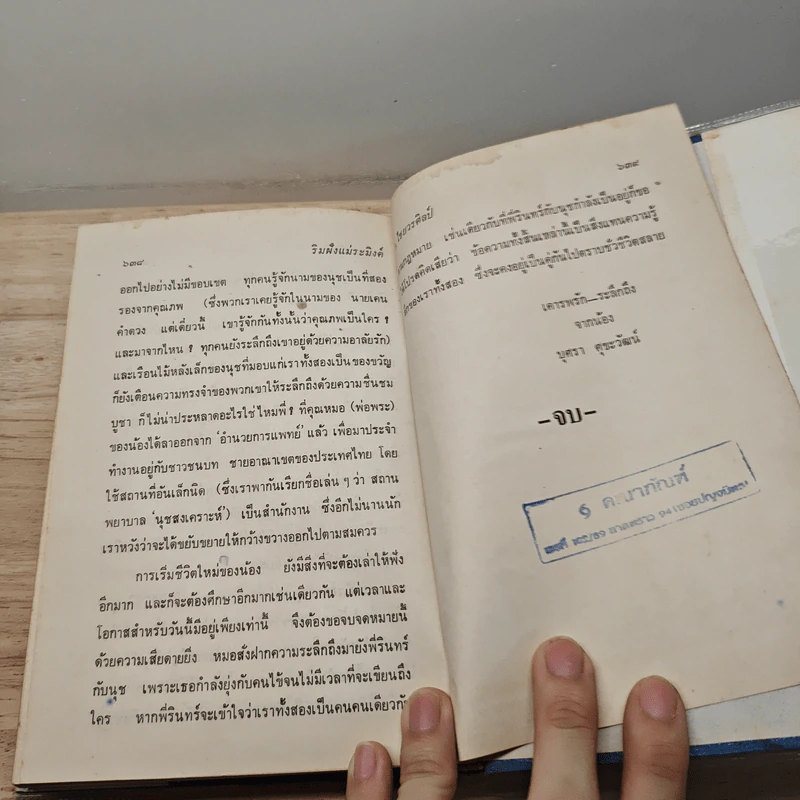 ๖๓๘
ริมฝั่งแม่ระมิงค์
ออกไปอย่างไม่มีขอบเขต ทุกคนรู้จักนามของนุชเป็นที่สอง
รองจากคุณภพ (ซึ่งพวกเราเคยรู้จักในนามของ นายเคน
คำดวง แต่เดี๋ยวนี้ เขารู้จักกันทั้งนั้นว่าคุณภพเป็นใคร ?
และมาจากไหน ? ทุกคนยังระลึกถึงเขาอยู่ด้วยความอาลัยรัก)
และเรือนไม้หลังเล็กของนุชที่มอบแก่เราทั้งสองเป็นของขวัญ
ก็ยังเตือนความทรงจำของพวกเขาให้ระลึกถึงด้วยความชื่นชม
บูชา ก็ไม่น่าประหลาดอะไรใช่ไหมพี่ ? ที่คุณหมอ (พ่อพระ)
ของน้องได้ลาออกจาก 'อำนวยการแพทย์' แล้ว เพื่อมาประจำ
ทำงานอยู่กับชาวชนบท ชายอาณาเขตของประเทศไทย โดย
ใช้สถานที่อันเล็กนิด (ซึ่งเราพากันเรียกชื่อเล่น ๆ ว่า สถาน
พยาบาล 'นุชสงเคราะห์') เป็นสำนักงาน ซึ่งอีกไม่นานนัก
เราหวังว่าจะได้ขยับขยายให้กว้างขวางออกไปตามสมควร
การเริ่มชีวิตใหม่ของน้อง ยังมีสิ่งที่จะต้องเล่าให้ฟัง
อีกมาก และก็จะต้องศึกษาอีกมากเช่นเดียวกัน แต่เวลาและ
โอกาสสำหรับวันนี้มีอยู่เพียงเท่านี้ จึงต้องขอจบจดหมายนี้
ด้วยความเสียดายยิ่ง หมอสั่งฝากความระลึกถึงมายังพี่รินทร์
กับนุช เพราะเธอกำลังยุ่งกับคนไข้จนไม่มีเวลาที่จะเขียนถึง
ใคร หากพี่รินทร์จะเข้าใจว่าเราทั้งสองเป็นคนคนเดียวกัน
๖๓๙
วรศิลป์
กฎหมาย เช่นเดียวกับที่พี่รินทร์กับนุชกำลังเป็นอยู่ก็ขอ
โปรดคิดเสียว่า ข้อความทั้งสิ้นเหล่านี้เป็นสิ่งแทนความรู้
ของเราทั้งสอง ซึ่งจะคงอยู่เป็นคู่กันไปตราบชั่วชีวิตสลาย
เคารพรัก—ระลึกถึง
จากน้อง
บุศรา ศุขะวัฒน์
–จบ–